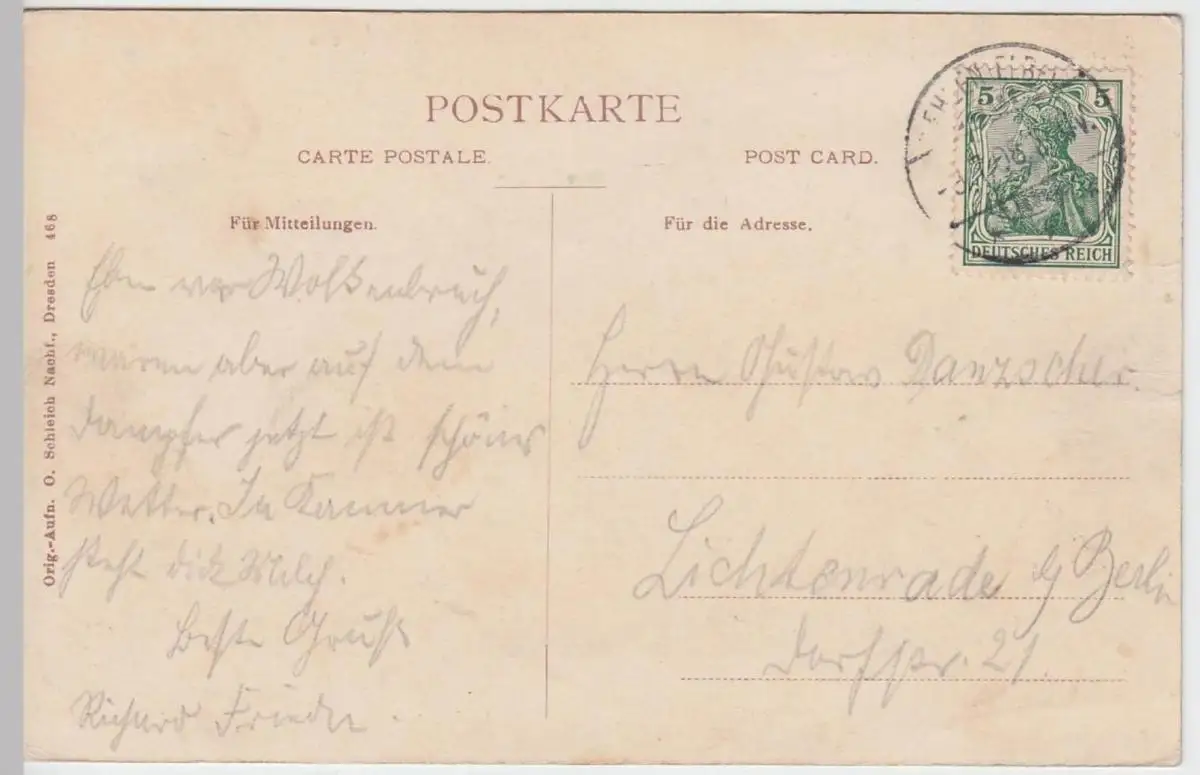 POSTKARTE
CARTE POSTALE.
POST CARD.
Für Mitteilungen.
Für die Adresse.
5 5
DEUTSCHES REICH
Orig.-Aufn. O. Schleich Nachf., Dresden 468
Eben war Wolkenbruch,
waren aber auf dem
Dampfer jetzt ist schönes
Wetter. In Kammer
steht dicke Milch.
Beste Grüße
Richard
Herrn Gustav Danzscher.
Lichtenrade b/ Berlin
Dorfstr. 21.